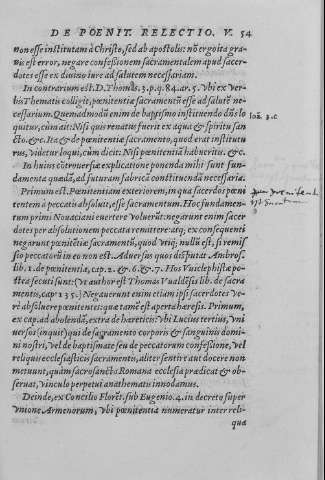 DE POENIT. RELECTIO. V. 54
non esse institutam à Christo, sed ab apostolis: nō ergo ita gra-
vis est error, negare confessionem sacramentalem apud sacer-
dotes esse ex divino iure ad salutem necessariam.
In contrarium est. D. Thomas. 3. p. q. 84. ar. 5. Vbi ex ver-
bis Thematis colligit, pœnitentiæ sacramentū esse ad salutē ne-
cessarium. Quemadmodū enim de baptismo instituendo dn̄s lo
quitur, cùm ait: Nisi quis renatus fuerit ex aqua & spiritu san
cto. &c. Ita & de pœnitentiæ sacramento, quod erat institutu
rus, videtur loqui, cùm dicit: Nisi pœnitentiā habueritis. &c.
In huius cōtroversiæ explicatione ponenda mihi sunt fun-
damenta quædā, ad futuram fabricā constituendā necessaria.
Primum est. Pœnitentiam exteriorem, in qua sacerdos pœni
tentem à peccatis absolvit, esse sacramentum. Hoc fundamen-
tum primi Novaciani evertere voluerūt: negarunt enim sacer
dotes per absolutionem peccata remittere: atq; ex consequenti
negarunt pœnitētiæ sacramentū, quod vtiq; nullū est, si remis
sio peccatorū in eo non est. Adversus quos disputat Ambros.
lib. 1. de pœnitentia, cap. 2. & 6. & 7. Hos Vviclephistæ po-
stea secuti sunt: (Vt author est Thomas Vvaldēsis lib. de sacra
mentis, cap 135.) Negaverunt enim etiam ipsi sacerdotes ve-
rè absolvere pœnitentes: quæ tamē est aperta hæresis. Primum,
ex cap. ad abolendā, extra de hæreticis: Vbi Lucius tertius, Vni
versos (inquit) qui de sacramento corporis & sanguinis domi
ni nostri, vel de baptismate seu de peccatorum confessione, vel
reliquis ecclesiasticis sacramentis, aliter sentire aut docere non
metuunt, quàm sacrosancta Romana ecclesia prædicat & ob-
servat, vinculo perpetui anathematis innodamus.
Deinde, ex Concilio Florēt. sub Eugenio. 4. in decreto super
vnione Armenorum, Vbi pœnitentia numeratur inter reli-
qua
Ioā. 3. c